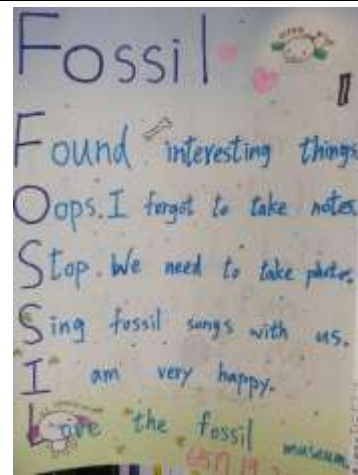 Fossil
Found interesting things
Oops. I forgot to take notes
Stop. We need to take photos.
Sing fossil songs with us.
I am very happy.
Love the fossil museum.